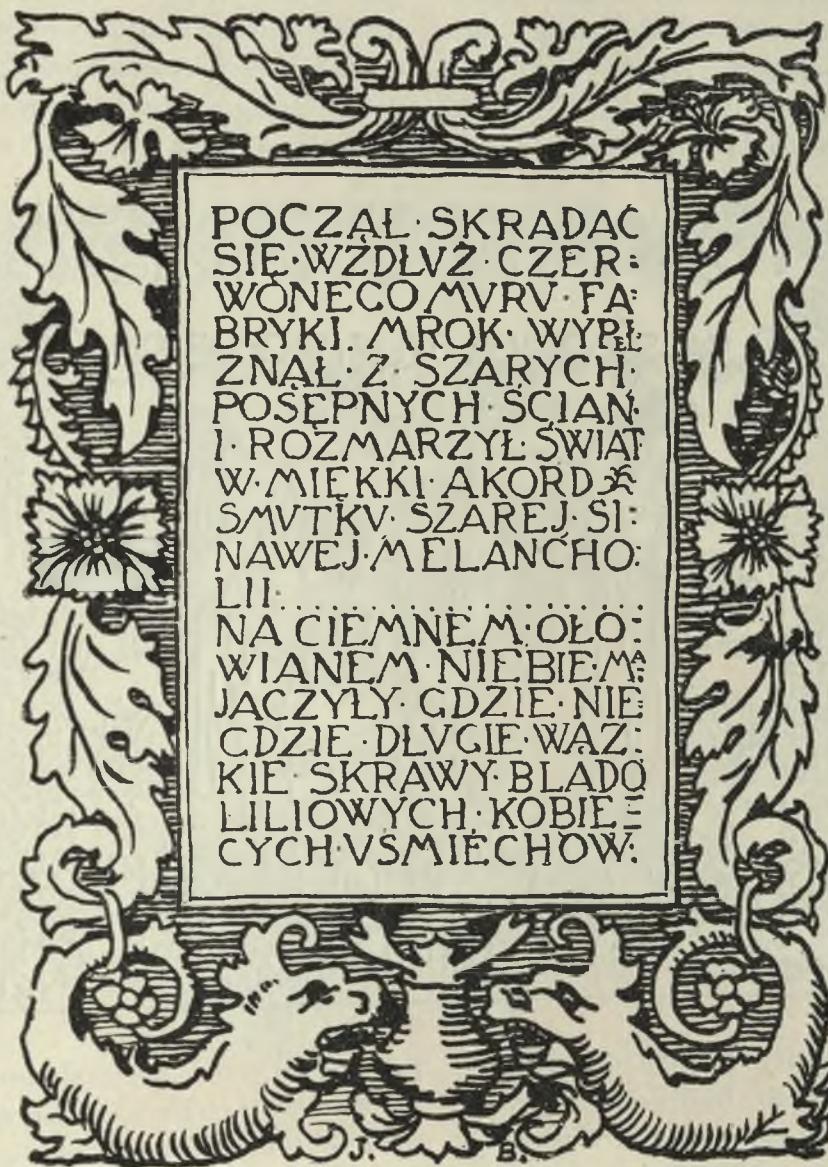 POCZĄŁ·SKRADAĆ
SIĘ·WZDŁVŻ·CZER:
WONEGO MVRV·FA:
BRYKI. MROK·WYPEŁ
ZNĄŁ·Z·SZARYCH·
POSĘPNYCH·ŚCIAN·
I·ROZMARZYŁ·ŚWIAT
W·MIĘKKI·AKORD
SMVTKV·SZAREJ·SI:
NAWEJ·MELANCHO:
LII......................
NA CIEMNEM·OŁO:
WIANEM·NIEBIE·MA:
JACZYŁY·GDZIE·NIE:
GDZIE·DŁVGIE·WĄZ:
KIE·SKRAWY·BLADO
LILIOWYCH·KOBIE:
CYCH·VSMIECHOW:
J. B.